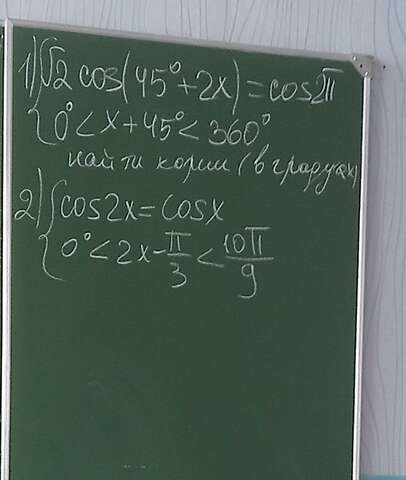 1) { √2 cos(45° + 2x) = cos2π
0° < x + 45° < 360°
найти корни (в градусах)
2) { cos2x = cosx
0° < 2x - π/3 < 10π/9